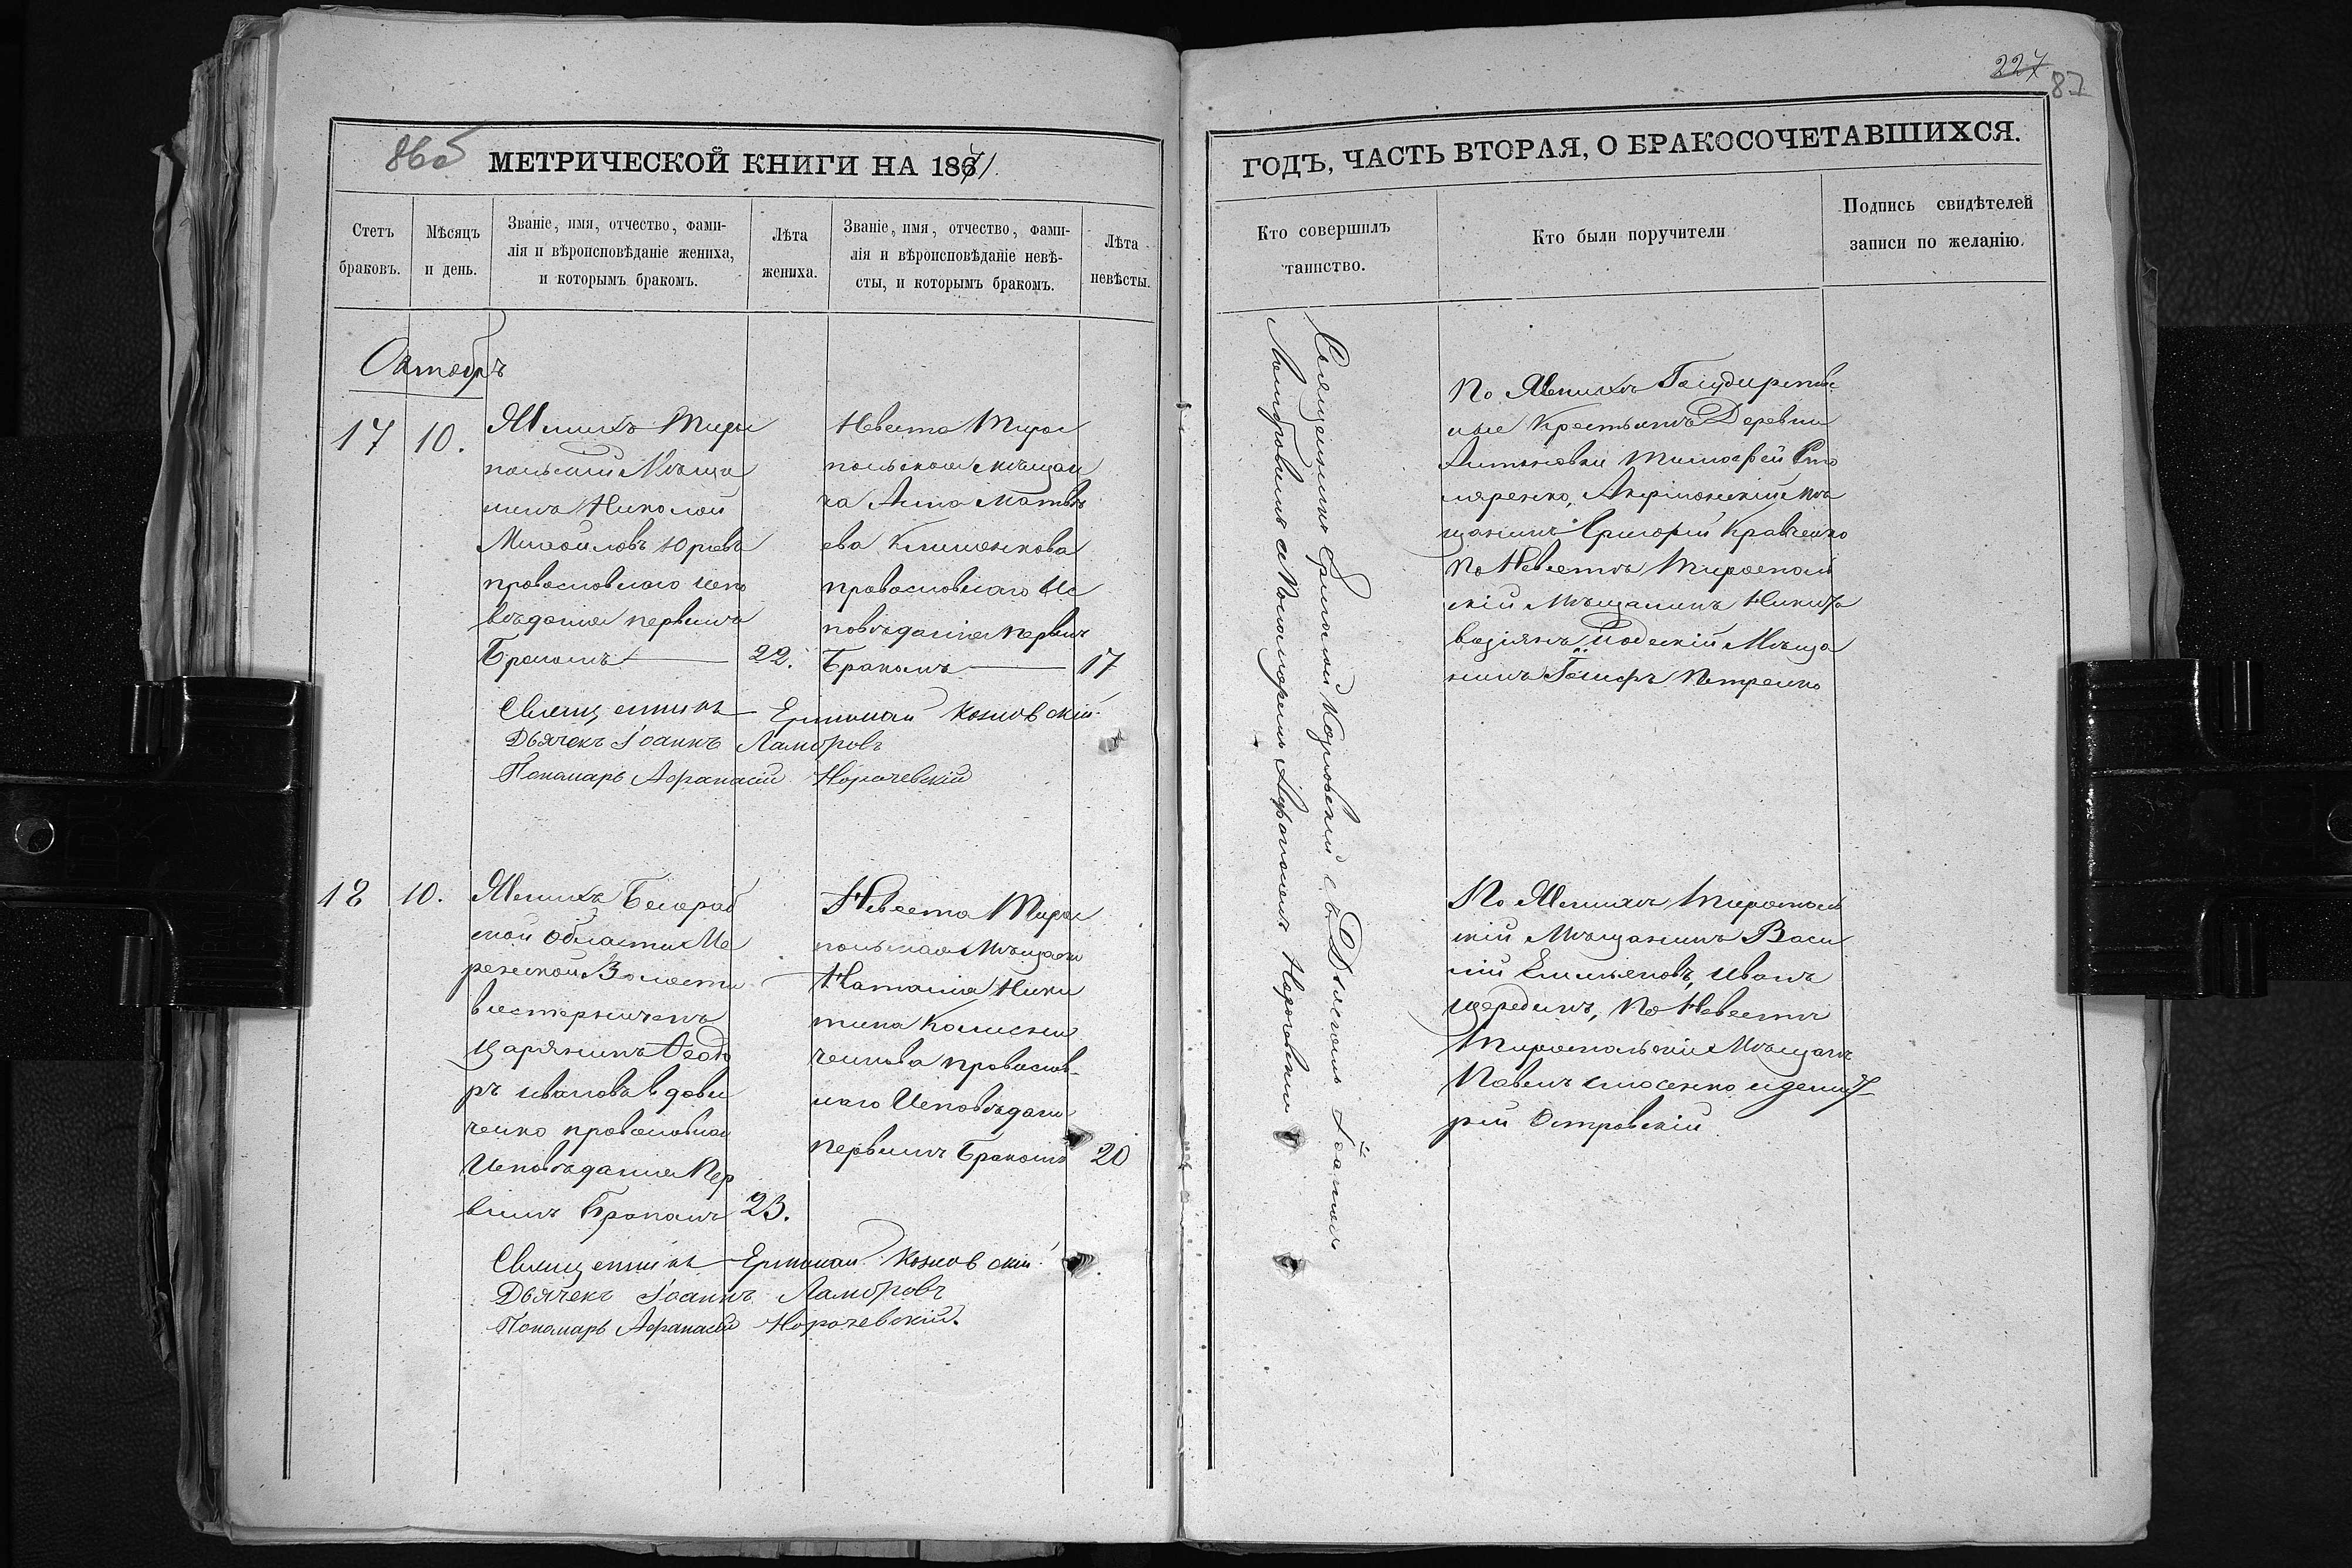 86об
МЕТРИЧЕСКОЙ КНИГИ НА 1871.
Счетъ браковъ.
Мѣсяцъ и день.
Званіе, имя, отчество, фами-
лія и вѣроисповѣданіе жениха,
и которымъ бракомъ.
Лѣта жениха.
Званіе, имя, отчество, фами-
лія и вѣроисповѣданіе невѣ-
сты, и которымъ бракомъ.
Лѣта невѣсты.
Октябрь
17
10.
Женихъ Тирас
польский Мѣща
нинъ Николай
Михайловъ Юрьевъ
православнаго испо
вѣданія первымъ
Бракомъ
22.
Невеста Тирас
польская мѣщан
ка Анна Матвѣ
ева Клименкова
православнаго Ис
повѣданія первым
Бракомъ
17
Священникъ Ермолай Козловскій.
Дьячекъ Іоаннъ Ламбровъ
Пономарь Афанасій Нарочевскій
18
10.
Женихъ Бесараб
ской Области Ме
ренской Волости
Царянинъ Феодо
ръ Ивановъ Вдови
ченко православнаго
Исповѣданія Пер
вымъ Бракомъ
23.
Невеста Тирас
польская Мѣщанк
Наталія Ники
тина Колисни
ченкова православ-
наго Исповѣдани
первымъ Бракомъ
20
Священникъ Ермолай Козловскій.
Дьячекъ Іоаннъ Ламбровъ
Пономарь Афанасій Нарочевскій.
227
87
ГОДЪ, ЧАСТЬ ВТОРАЯ, О БРАКОСОЧЕТАВШИХСЯ.
Кто совершилъ таинство.
Кто были поручители
Подпись свидѣтелей записи по желанію.
Священникъ Ермолай Козловскій съ Дьячкомъ Іоанномъ
Ламбровымъ и Пономаремъ Афанасіемъ Нарочевским
По Женихѣ Государствен
ные Крестьянъ Деревни
Антоновки Тимофей Сто
ляренко, мѣ
щанинъ Григорій Кравченко
По Невестѣ Тираспол
скій Мѣщанинъ Никита
Одескій Мѣща
нинъ Іосифъ Петренко
По Женихѣ Тирасполь
скій Мѣщанинъ Васи
лій Емильяновъ, Иванъ
Щерединъ, По Невестѣ
Тираспольскіи Мѣщанъ
Павелъ и Дмит
рій Островскій